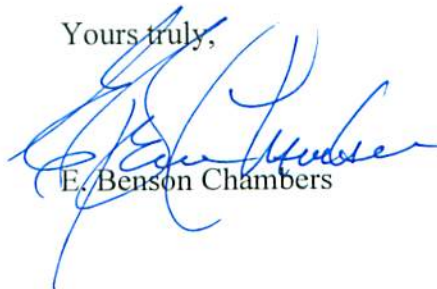 Yours truly,
E. Benson Chambers